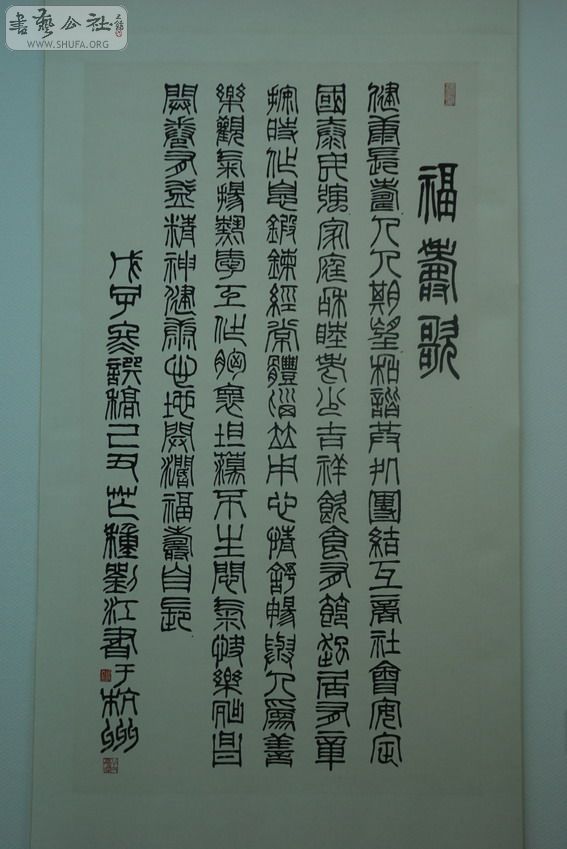 書藝公社
WWW.SHUFA.ORG
福壽歌
健康長壽人人期望和諧團結互社會安定
國泰民強家庭和睦老少吉祥飲食有節起居有章
按時作息鍛鍊經常體腦並用心情舒暢與人為善
樂觀氣揚熱工作胸襄坦蕩不生悶氣快樂
養有益精神健康心地開闊福壽自長
戊子寒譔稿己丑芒種劉江書于杭州